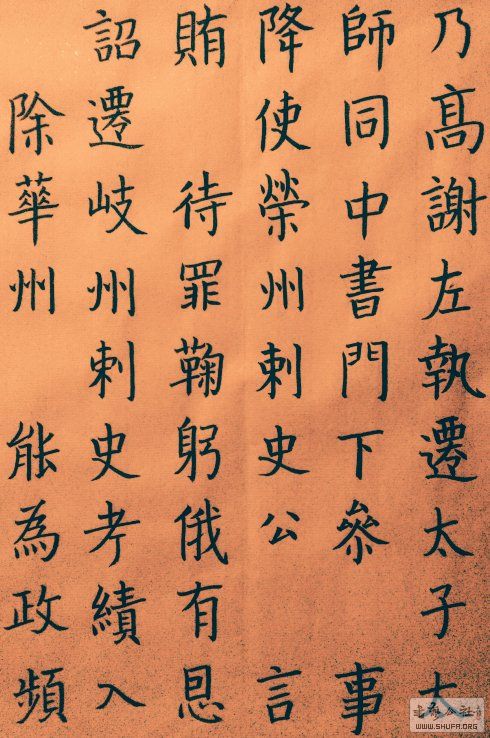 乃髙謝左執遷太子太
師同中書門下叅 事
降使榮州刺史公 言
賄 待罪鞠躬俄有恩
詔遷岐州刺史考績入
除華州 能為政頻
WWW.SHUFA.ORG